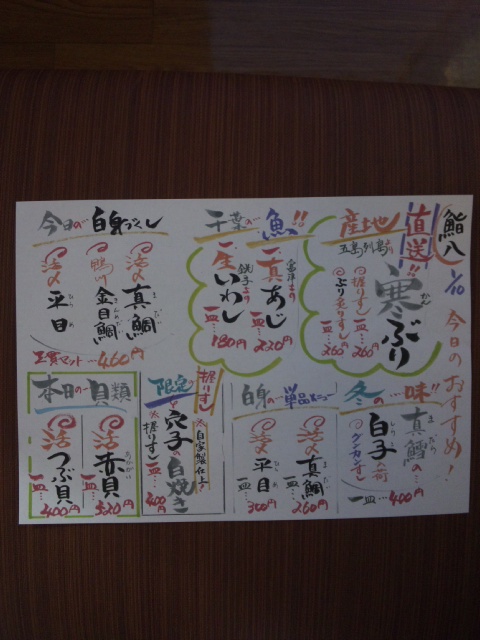 鮨八 1/10 今日のおすすめ!
産地直送!!
五島列島の
寒ぶり
かん
握りすし一皿…260円
ぶり炙りすし一皿…260円
千葉の…魚!!
富津より
真あじ
一皿…220円
銚子より
生いわし
一皿…180円
今日の…白身づくし
活〆
真鯛
まだい
鴨川
金目鯛
きんめだい
活〆
平目
ひらめ
三貫セット…460円
冬の…味!!
真鱈の…
まだら
白子
しらこ
グンカンすし
一皿…400円
白身の…単品メニュー
活〆
真鯛
一皿…260円
活〆
平目
一皿…300円
限定
握りすし
穴子の白焼き
※自家製仕上
※握りすし
一皿…400円
本日の…貝類
活
赤貝
あかがい
一皿…520円
活
つぶ貝
一皿…400円